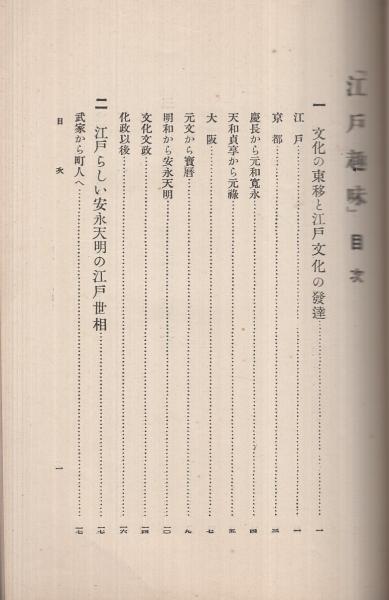 「江戸趣味」目次
一 文化の東移と江戸文化の發達………一
江戸………一
京都………三
慶長から元和寬永………四
天和貞享から元祿………五
大阪………七
元文から寶曆………九
明和から安永天明………一〇
文化文政………一四
化政以後………一六
二 江戸らしい安永天明の江戸世相………一七
武家から町人へ………一七
目次 一